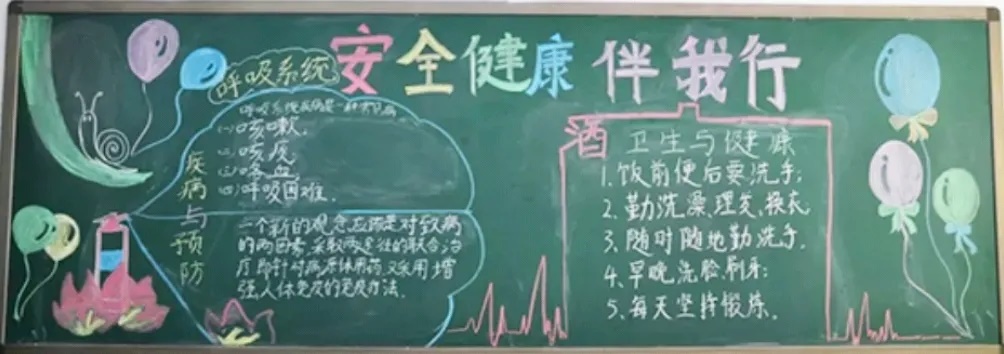 安全健康伴我行
呼吸系统
呼吸系统疾病是一种常见病
(一)咳嗽.
(二)咳痰.
(三)咯血.
(四)呼吸困难.
疾病与预防
一个新的观念应该是对致病
的两因素,采取两途径的联合治
疗即针对病原体用药,又采用增
强人体免疫的免疫疗法.
酒
卫生与健康
1.饭前便后要洗手;
2.勤洗澡、理发、换衣.
3.随时随地勤洗手.
4.早晚洗脸、刷牙;
5.每天坚持锻炼.